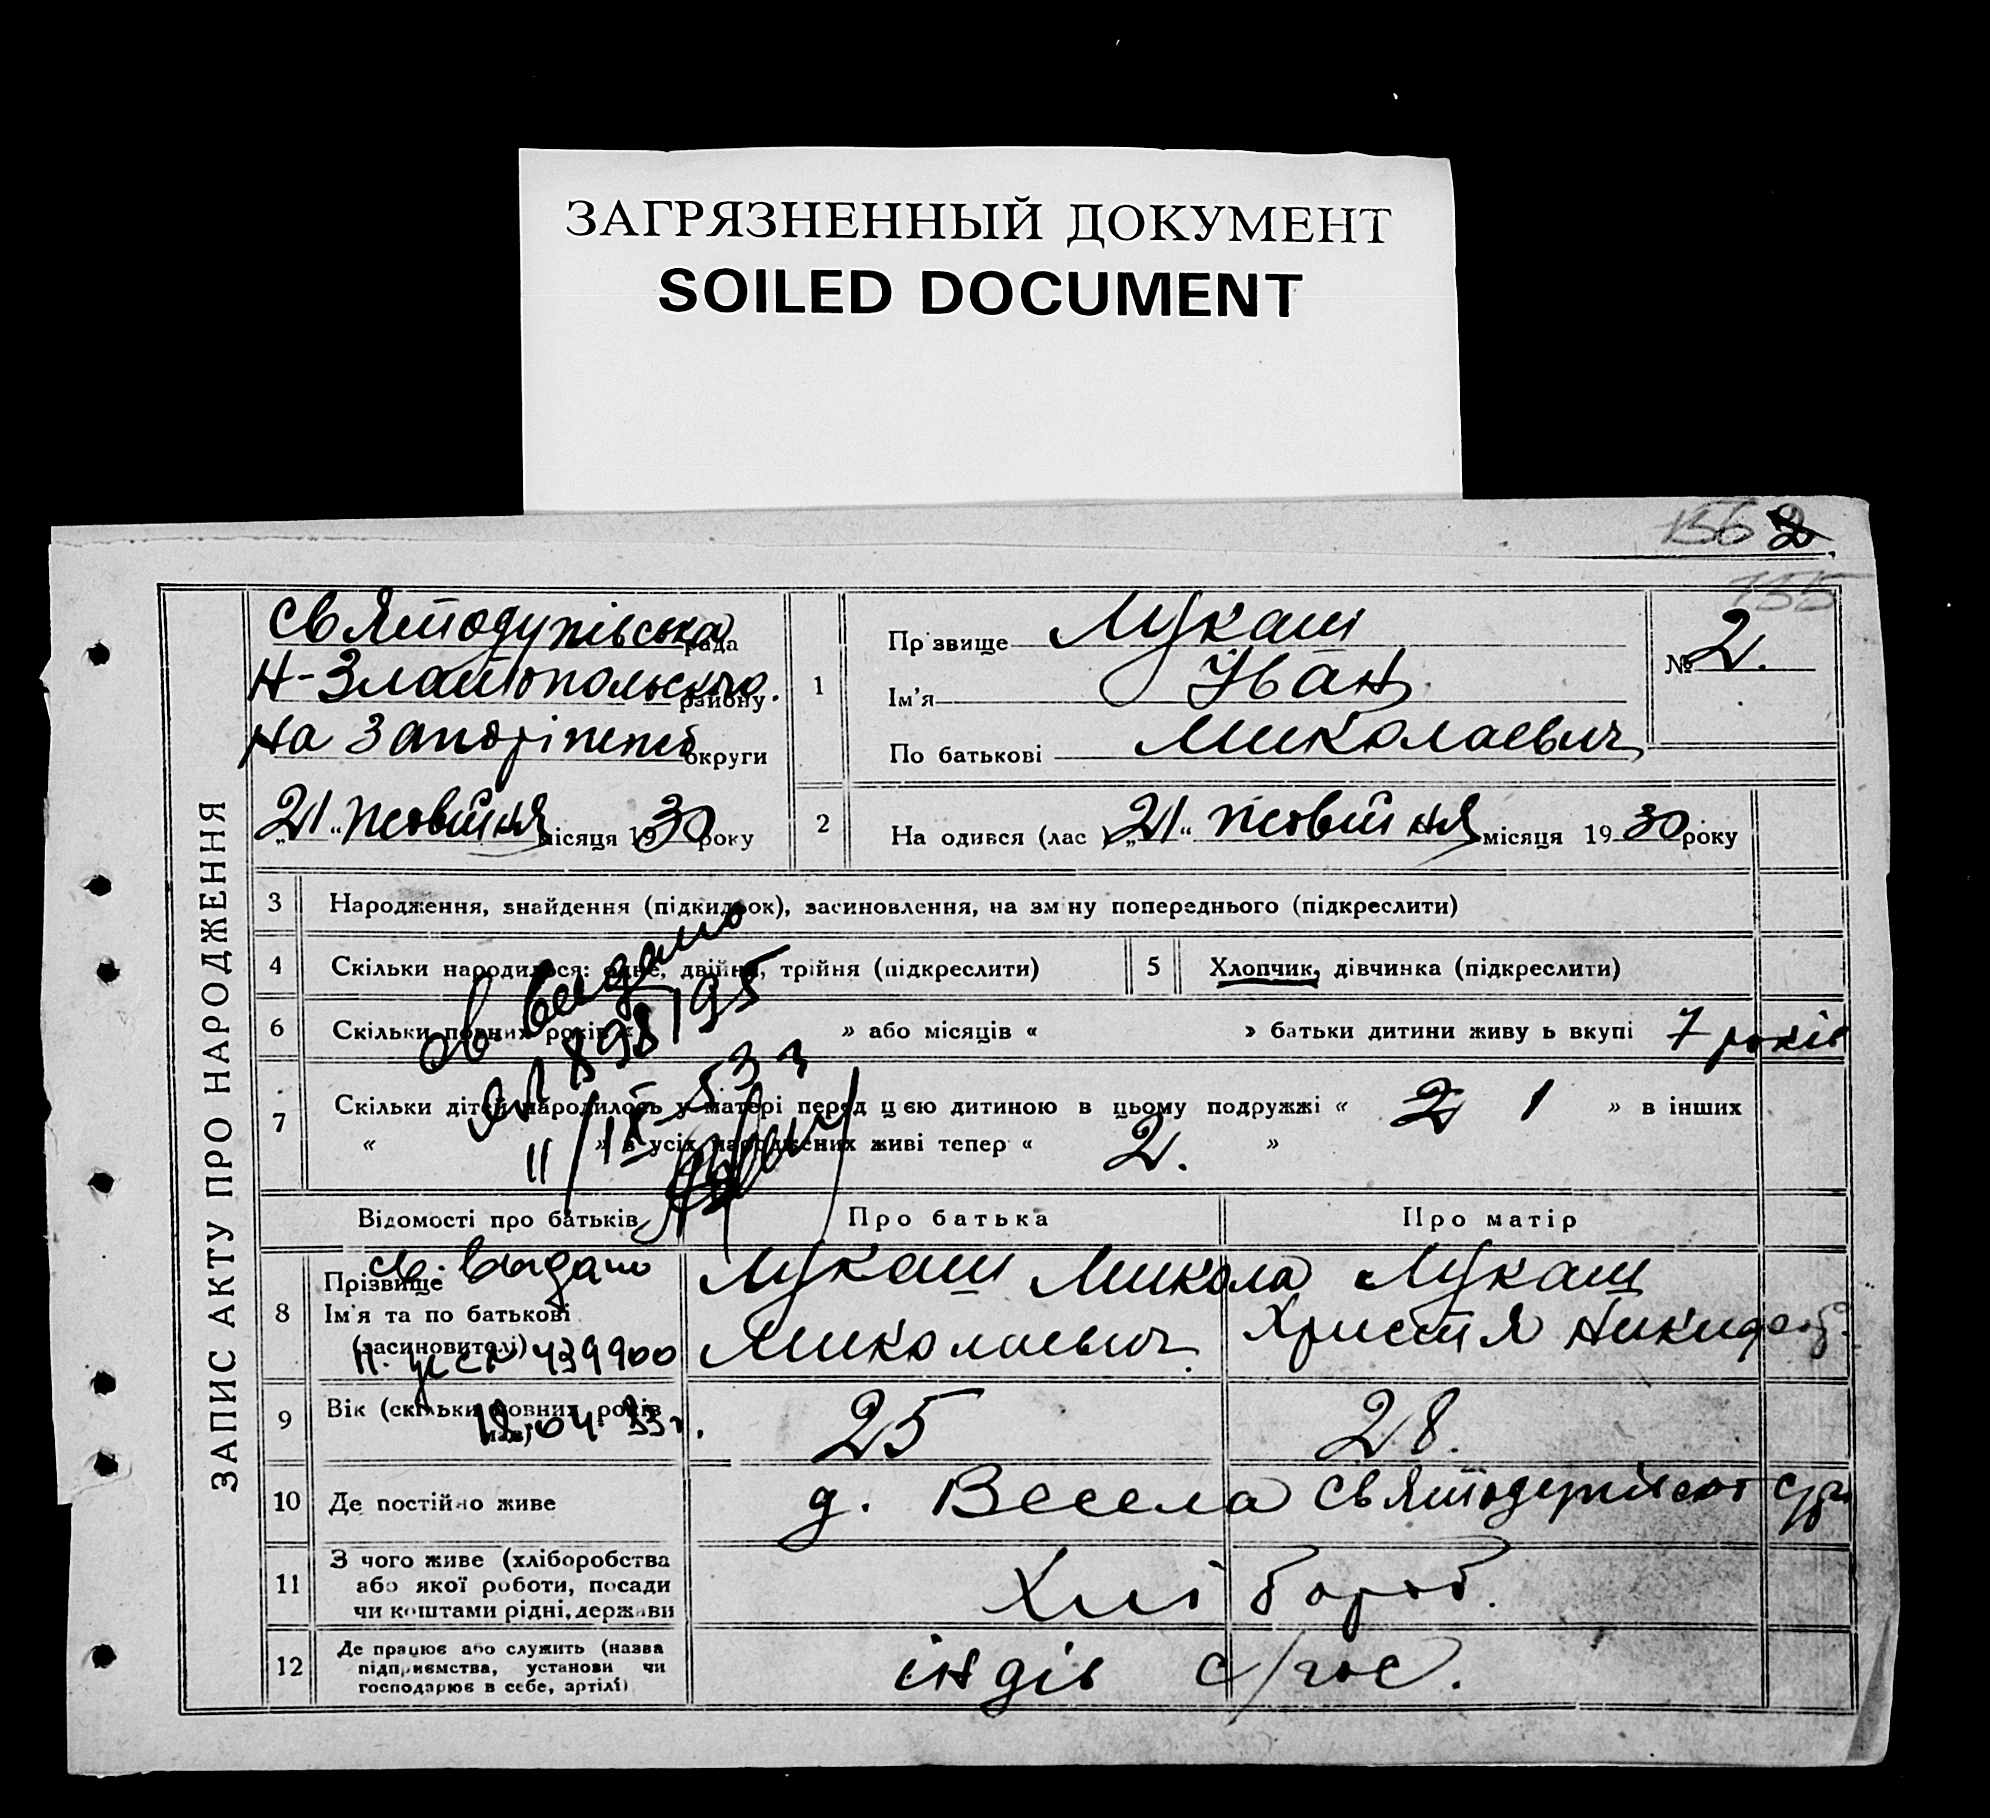 ЗАГРЯЗНЕННЫЙ ДОКУМЕНТ
SOILED DOCUMENT
156 2
155
ЗАПИС АКТУ ПРО НАРОДЖЕННЯ
Святодухівська рада
Н-Златопольського району
на Запоріжжі округи
„21“ жовтня місяця 1930 року
1
Прізвище Лукаш
Ім'я Іван
По батькові Миколаевич
№ 2.
2
На одився (лас ) „21“ жовтня місяця 1930 року
3 Народження, знайдення (підкидьок), засиновлення, на зміну попереднього (підкреслити)
4 Скільки народилося: одне, двійня, трійня (підкреслити)
5 Хлопчик, дівчинка (підкреслити)
6 Скільки повних років « » або місяців « » батьки дитини живуть вкупі 7 років
7 Скільки дітей народилось у матері перед цією дитиною в цьому подружжі « 2 1 » в інших
« » в усіх народжених живі тепер « 2. »
св. выдано
898195
11/IX 53 г
Відомості про батьків
Про батька
Про матір
8 Прізвище
Ім'я та по батькові
(засиновителі)
св. выдано
439900
Лукаш Микола
Миколаевич
Лукаш
Христя Никифор.
9 Вік (скільки повних років
12.04 33 г.
25
28.
10 Де постійно живе
д. Весела Святодухівської с/р
11 З чого живе (хліборобства
або якої роботи, посади
чи коштами рідні, держави
Хлібороб.
12 Де працює або служить (назва
підприємства, установи чи
господарює в себе, артілі)
індів с/гос.